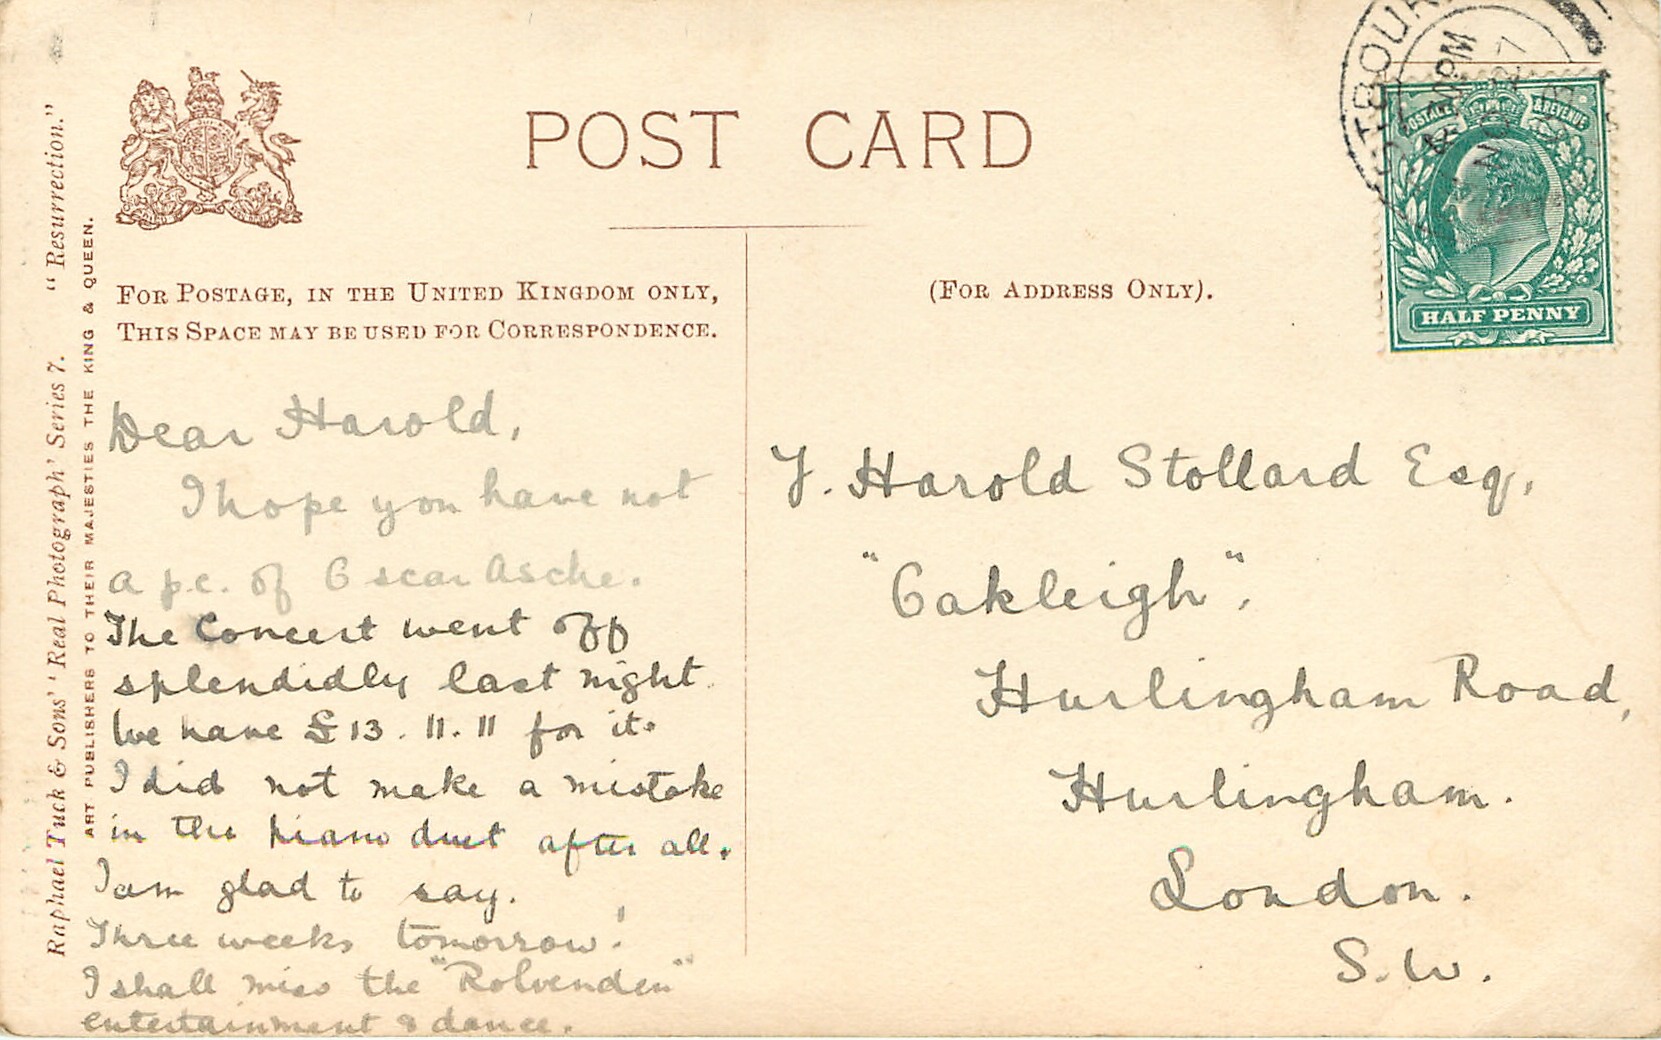 POST CARD
FOR POSTAGE, IN THE UNITED KINGDOM ONLY,
THIS SPACE MAY BE USED FOR CORRESPONDENCE.
(FOR ADDRESS ONLY).
Raphael Tuck & Sons' 'Real Photograph' Series 7. "Resurrection."
ART PUBLISHERS TO THEIR MAJESTIES THE KING & QUEEN.
POSTAGE & REVENUE
HALF PENNY
Dear Harold,
I hope you have not
a p.c. of Oscar Asche.
The Concert went off
splendidly last night.
We have £13.11.11 for it.
I did not make a mistake
in the piano duet after all.
I am glad to say.
Three weeks tomorrow!
I shall miss the "Rolvenden"
entertainment & dance.
J. Harold Stollard Esq,
"Oakleigh".
Hurlingham Road,
Hurlingham.
London.
S.W.